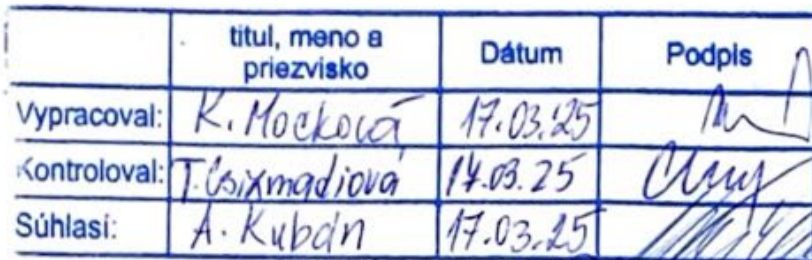 titul, meno a priezvisko Dátum Podpis
Vypracoval: K. Mocková 17.03.25
Kontroloval: T. Csizmadiová 17.03.25
Súhlasí: A. Kubán 17.03.25